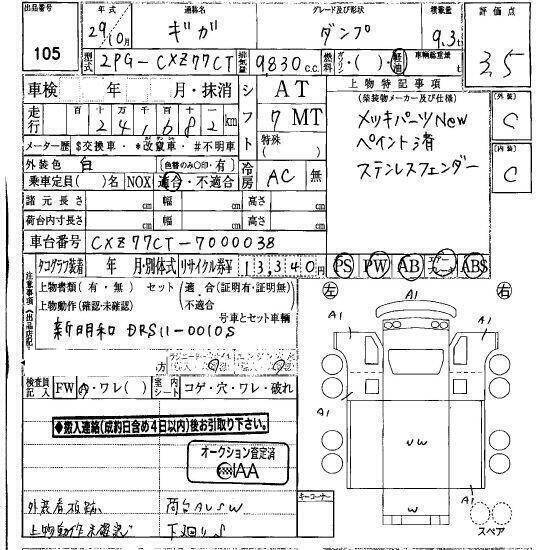 出品番号 105
年式 29年10月
通称名 ギガ
グレード及び形状 ダンプ
積載量 9.3t
評価点 3.5
型式 2PG-CXZ77CT
排気量 9830 c.c.
燃料 ガソリン・( )・軽油
車輌総重量 t
車検 年 月・抹消
シフト AT
7 MT
特殊( )
走行 十万千百十 24,682 km
メーター歴 $交換車・*改竄車・#不明車
外装色 白 (色替のみ○印・有)
冷房 AC 無
乗車定員( )名 NOX 適合・不適合
上物特記事項
(架装物メーカー及び仕様)
メッキパーツNew
ペイント済
ステンレスフェンダー
外装 C
内装 C
諸元長さ cm 幅 cm 高さ cm
荷台内寸長さ cm 幅 cm 高さ cm
車台番号 CXZ77CT-7000038
タコグラフ装着 年 月・別体式 リサイクル券¥ 13,340円
PS PW AB エアーブレーキ ABS
注意事項(出品店記入)
上物書類(有・無) セット(適合(証明有・証明無)
上物動作(確認・未確認) 不適合)
号車とセット車輌
新明和 DRS11-0010S
左 右
検査員記入 FW ・ワレ( ) 室内シート コゲ・穴・ワレ・破れ
◆搬入連絡(成約日含め4日以内)後お引取り下さい。
オークション査定済
IAA
外装看板跡 荷台AUSW
上物動作未確認 下廻りS
キーコーナー
A1
A1
A1
A1
A1
UW
W
スペア